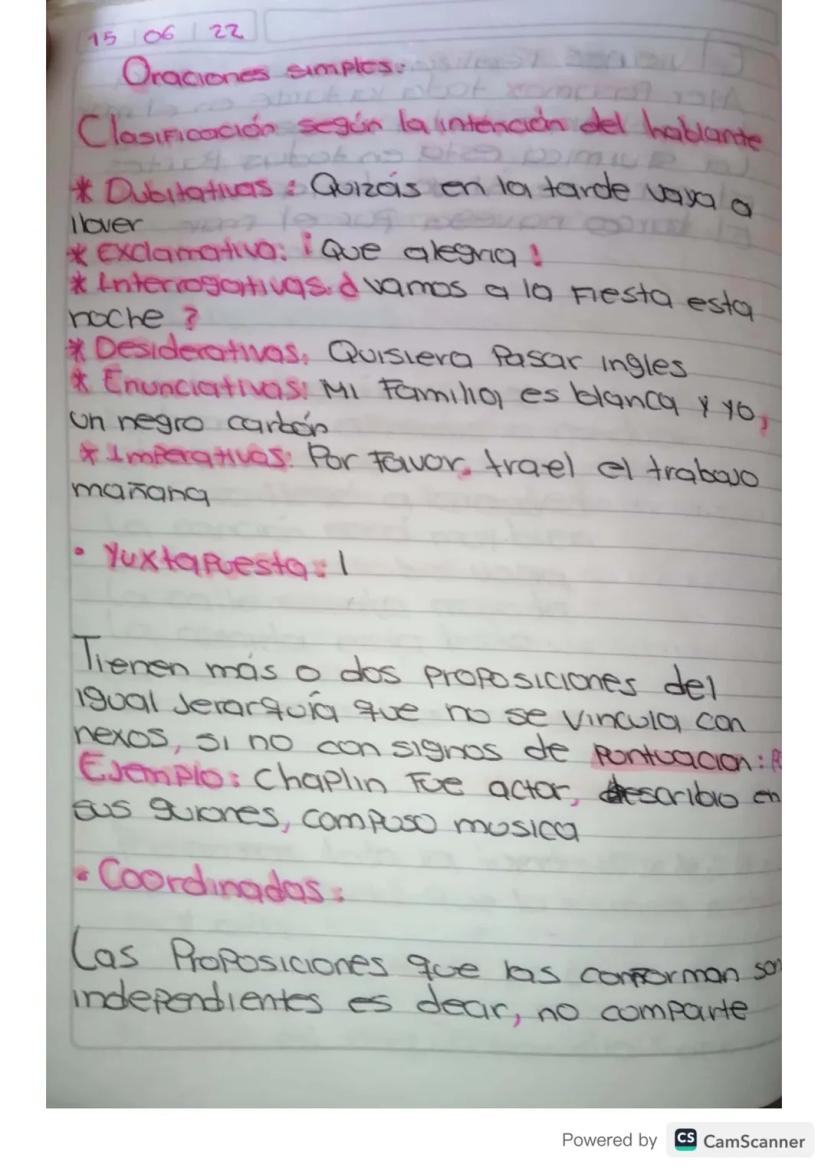 15 | 06 | 22
Oraciones simples:
Clasificación según la intención del hablante
* Dubitativas: Quizás en la tarde vaya a
llover
* exclamativa: ¡Que alegria!
* Interrogativas: ¿ vamos a la Fiesta esta
noche ?
* Desiderativas: Quisiera Pasar ingles
* Enunciativas: Mi Familia, es blanca y yo,
un negro carbón
* Imperativas: Por Favor, trael el trabajo
mañana
• Yuxtapuesta: l
Tienen más o dos proposiciones del
igual Jerarquía que no se vincula con
nexos, si no con signos de Pontuacion:
Ejemplo: Chaplin Fue actor, describio en
sus guiones, compuso musica
• Coordinadas:
Las Proposiciones que las conforman son
independientes es decir, no comparte
Powered by CS CamScanner